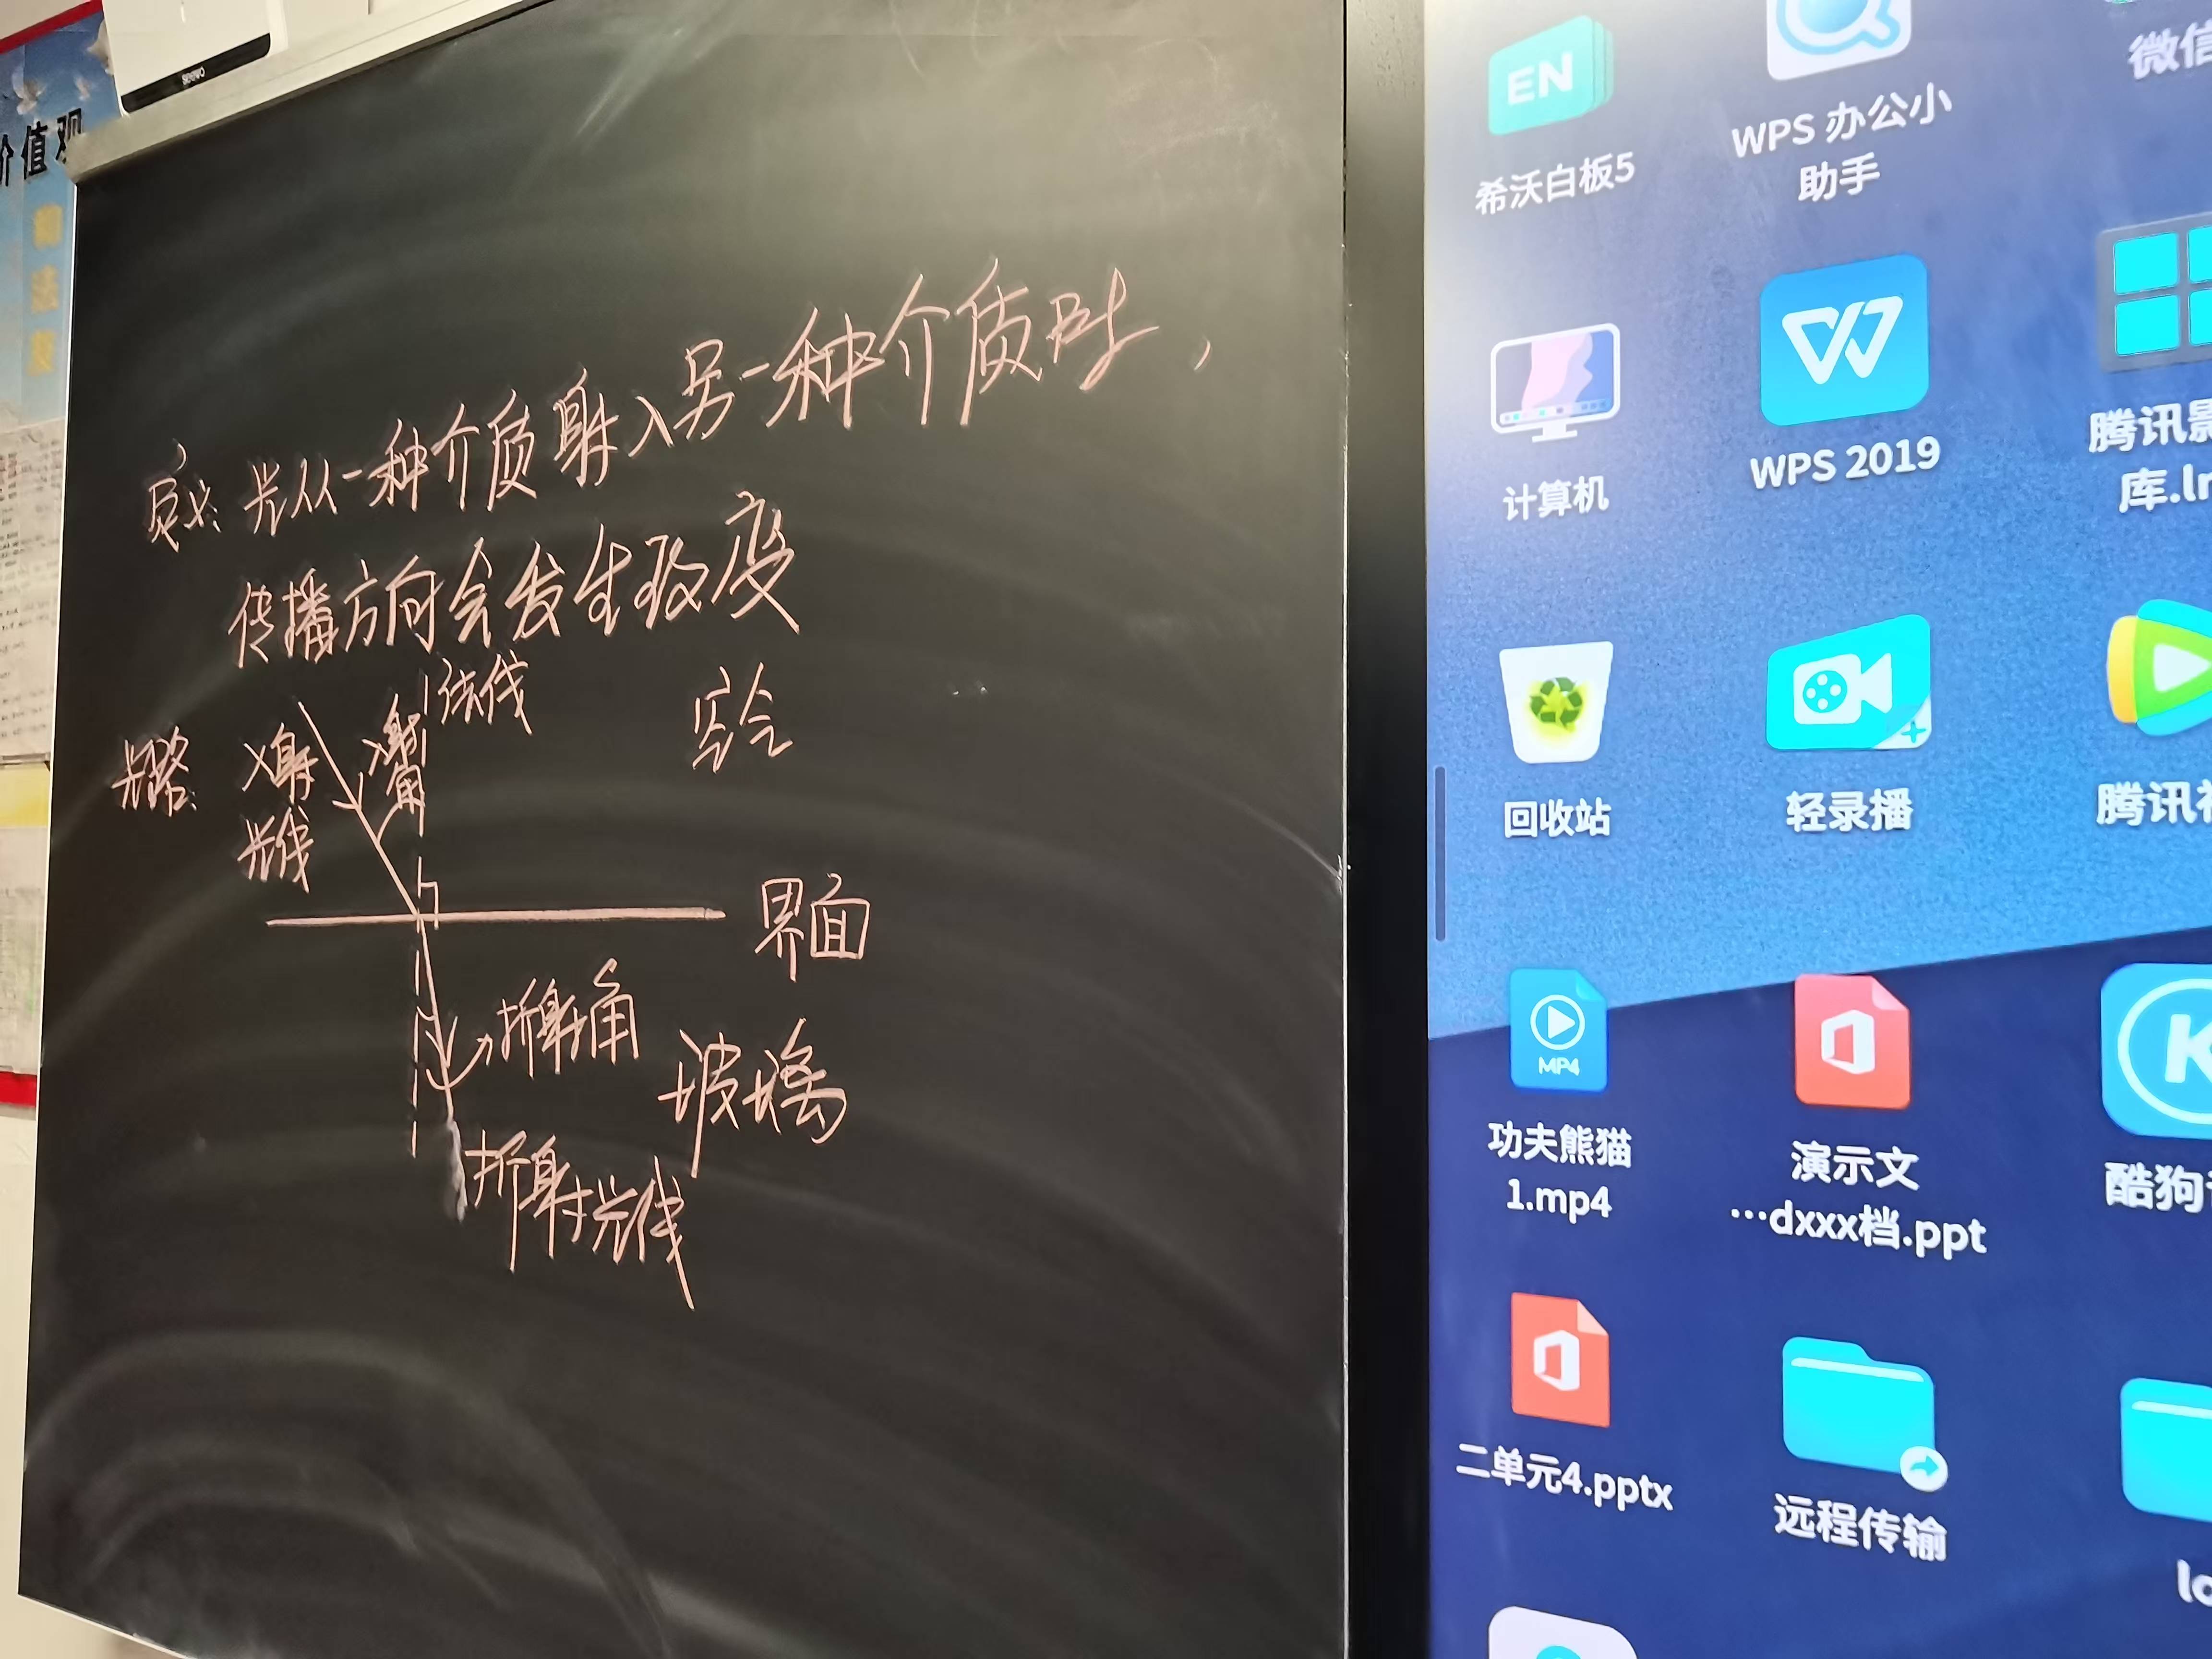 seewo
价值观
定义: 光从一种介质射入另一种介质时,
传播方向会发生改变
光路:
入射
光线
入射角
法线
空气
界面
折射角
玻璃
折射光线
EN
希沃白板5
WPS 办公小
助手
微信
计算机
WPS 2019
腾讯影
库.ln
回收站
轻录播
腾讯视
MP4
功夫熊猫
1.mp4
演示文
…dxxx档.ppt
K
酷狗音
二单元4.pptx
远程传输
lo